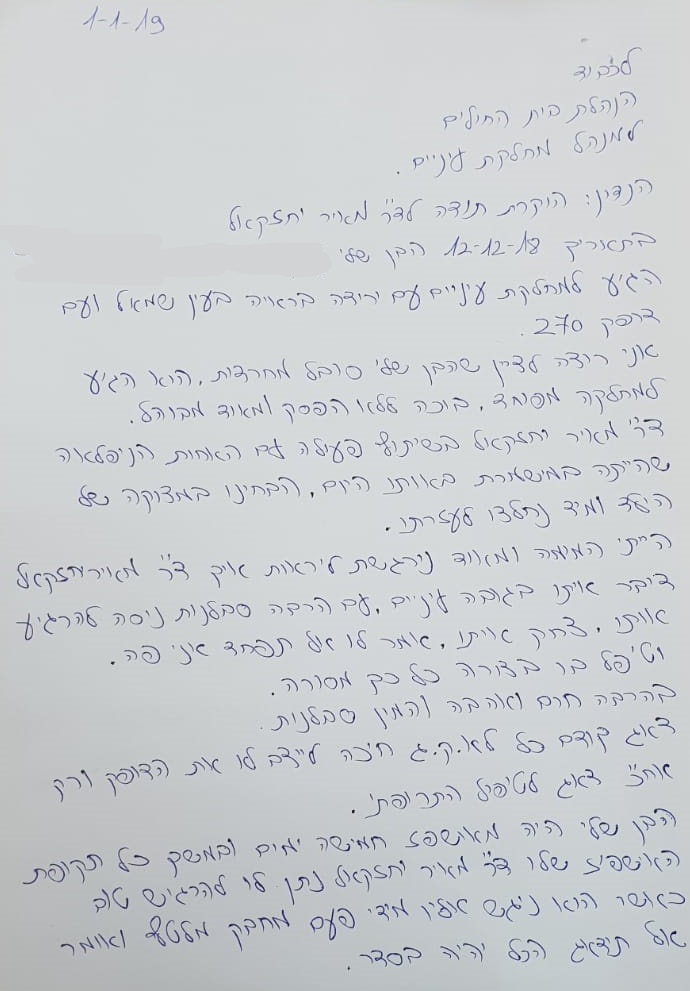 1-1-19
לכבוד
הנהלת בית החולים
למנהל מחלקת עיניים.
הנדין: הוקרת תודה לד"ר מאיר יחזקאל
בתאריך 12-12-18 הבן שלי
הגיע למחלקת עיניים עם ירידה בראייה בעין שמאל ועם
דופק 270.
אני רוצה לציין שהבן שלי סובל מחרדות, הוא הגיע
למחלקה מפוחד, בוכה ללא הפסק ומאוד מבוהל.
ד"ר מאיר יחזקאל בשיתוף פעולה עם האחות הניפלאה
שהייתה במישמרת באותו היום, הבחינו במצוקה של
הילד ומיד נחלצו לעזרתו.
הייתי המומה ומאוד נירגשת ליראות איך ד"ר מאיר יחזקאל
דיבר איתו בגובה עיניים, עם הרבה סבלנות ניסה להרגיע
אותו, צחק איתו, אמר לו אל תפחד אני פה.
וטיפל בו בצורה כל כך מסורה.
בהרבה חום ואהבה והמון סבלנות.
דאג קודם כל לא.ק.ג חיכה לייצב לו את הדופק ורק
אח"כ דאג לטיפול התרופתי.
הבן שלי היה מאושפז חמישה ימים ובמשך כל תקופת
האישפוז שלו ד"ר מאיר יחזקאל נתן לו להרגיש טוב
כאשר הוא ניגש אליו מידי פעם מחבק מלטף ואומר
אל תידאג הכל יהיה בסדר.